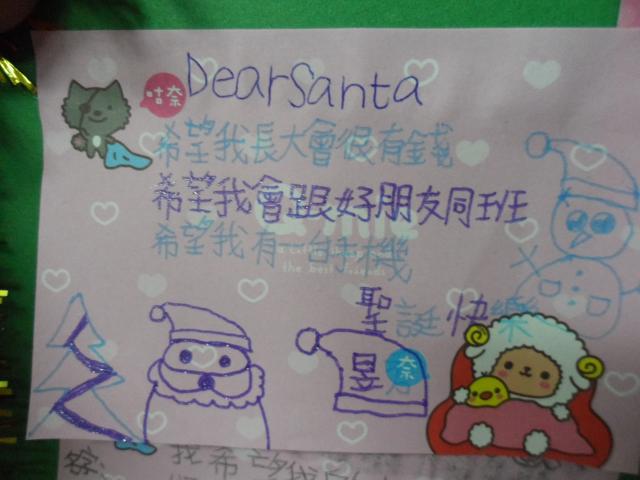 Dear Santa
咕奈
希望我長大會很有錢
希望我會跟好朋友同班
希望我有一台手機
the best friends
聖誕快樂
昱
奈
我希望我